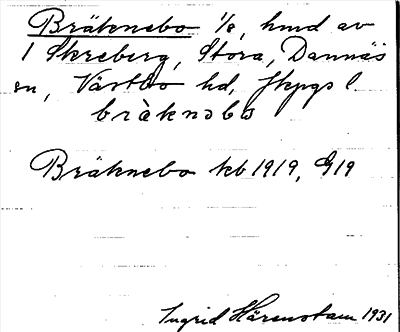 Bräknebo 1/8, hmd av
1 Skreberg, Stora, Dannäs
sn, Västbo hd, Jkpgs l.
bràknəbo
Bräknebo kb 1919, G19
Ingrid Härenstam 1931